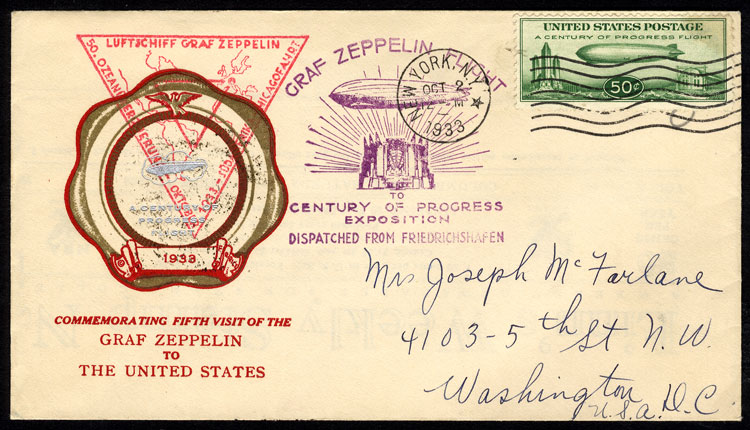 LUFTSCHIFF GRAF ZEPPELIN
50. OZEAN
CHICAGOFAHRT
OKTOBER 1933
A CENTURY OF
PROGRESS
FLIGHT
1933
COMMEMORATING FIFTH VISIT OF THE
GRAF ZEPPELIN
TO
THE UNITED STATES
GRAF ZEPPELIN FLIGHT
TO
CENTURY OF PROGRESS
EXPOSITION
DISPATCHED FROM FRIEDRICHSHAFEN
NEW YORK, N.Y.
OCT 2
12 M
1933
UNITED STATES POSTAGE
A CENTURY OF PROGRESS FLIGHT
50¢
Mrs Joseph McFarlane
4103-5th St N.W.
Washington
U.S.A. D.C.